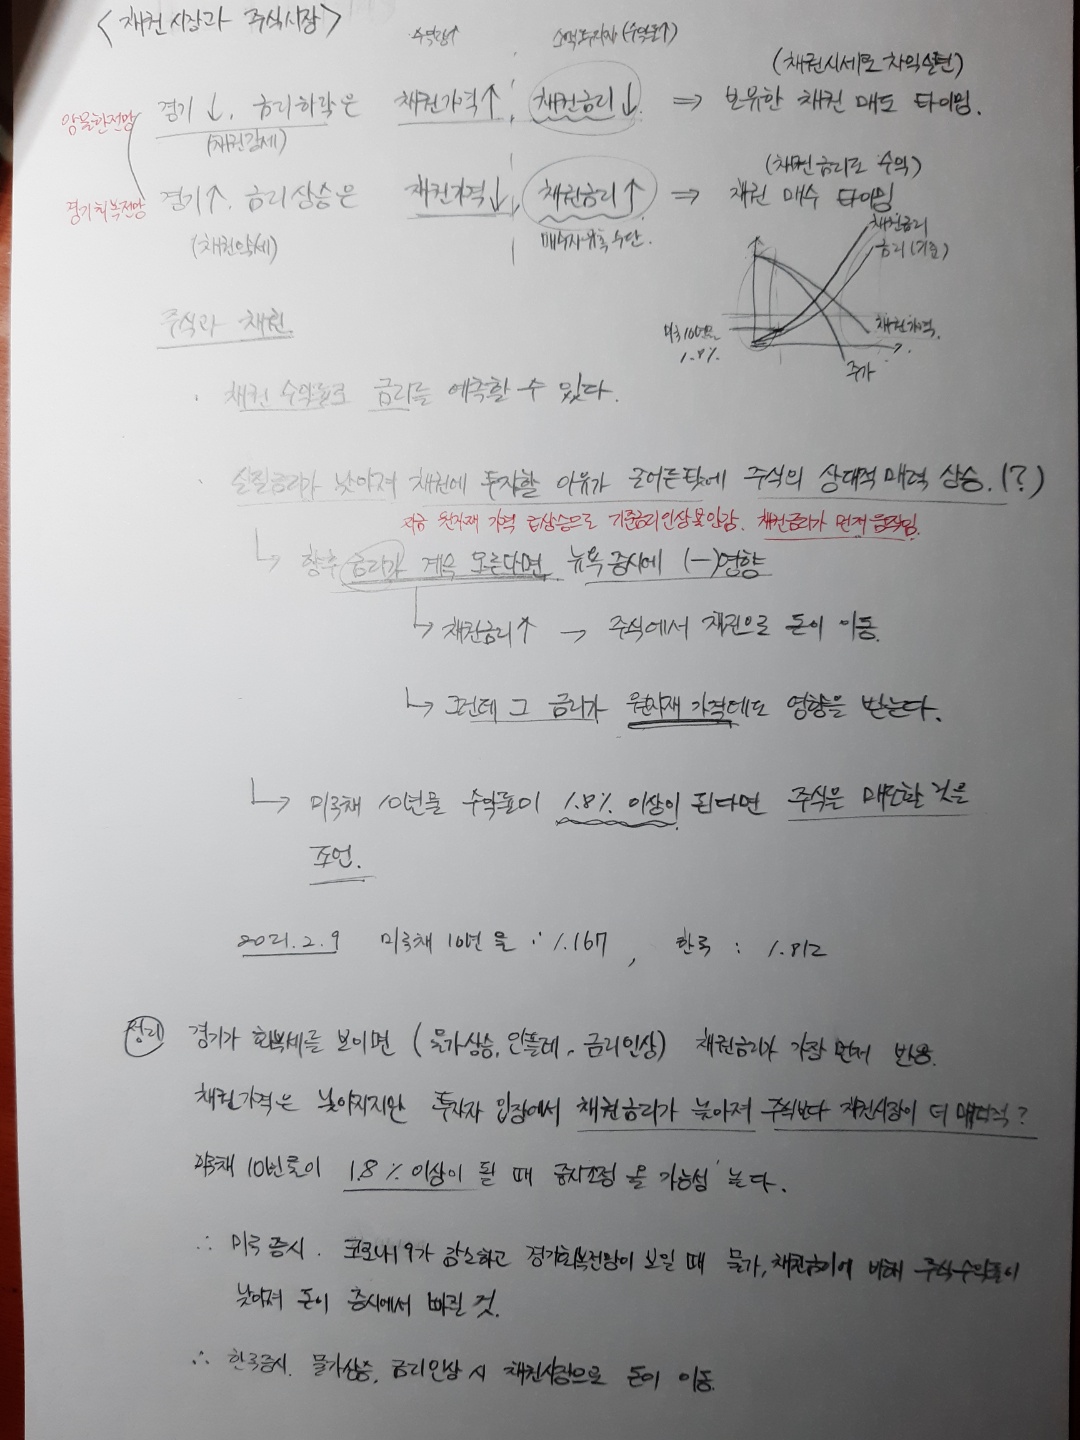 <채권시장과 주식시장>
수익률↑ 소액투자자 (수익률↑)
(채권시세로 차익실현)
암울한전망 경기↓, 금리하락은 채권가격↑, 채권금리↓ ⇒ 보유한 채권 매도 타이밍.
(채권강세)
(채권금리로 수익)
경기회복전망 경기↑, 금리상승은 채권가격↓, 채권금리↑ ⇒ 채권 매수 타이밍
(채권약세) 매수자유혹수단.
채권금리
금리(기준)
주식과 채권.
미국100년물
1.8%
채권가격.
주가
· 채권 수익률로 금리를 예측할 수 있다.
· 실질금리가 낮아져 채권에 투자할 이유가 줄어든탓에 주식의 상대적매력 상승.(?)
지금 원자재 가격 급상승으로 기준금리인상불안감. 채권금리가 먼저 움직임.
↳ 향후 금리가 계속 오른다면 뉴욕증시에 (-)영향
↳ 채권금리↑ → 주식에서 채권으로 돈이 이동.
↳ 그런데 그 금리가 원자재 가격테도 영향을 받는다.
↳ 미국채 10년물 수익률이 1.8% 이상이 된다면 주식은 매도할 것을
조언.
2021.2.9 미국채 10년물 : 1.167, 한국 : 1.812
정리 경기가 회복세를 보이면 (물가상승, 인플레, 금리인상) 채권금리가 가장 먼저 반응.
채권가격은 낮아지지만 투자자 입장에서 채권금리가 높아져 주식보다 채권시장이 더 매력적?
미국채 10년물이 1.8% 이상이 될 때 증시조정 올 가능성 높다.
∴ 미국증시. 코로나19가 감소하고 경기회복전망이 보일 때 물가, 채권금리에 비해 주식수익률이
낮아져 돈이 증시에서 빠질 것.
∴ 한국증시. 물가상승, 금리인상 시 채권시장으로 돈이 이동.